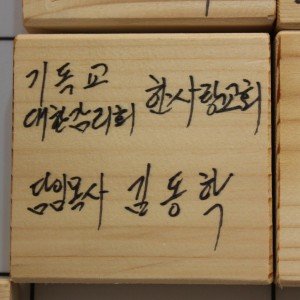 기독교
대한감리회 한사랑교회
담임목사 김동혁